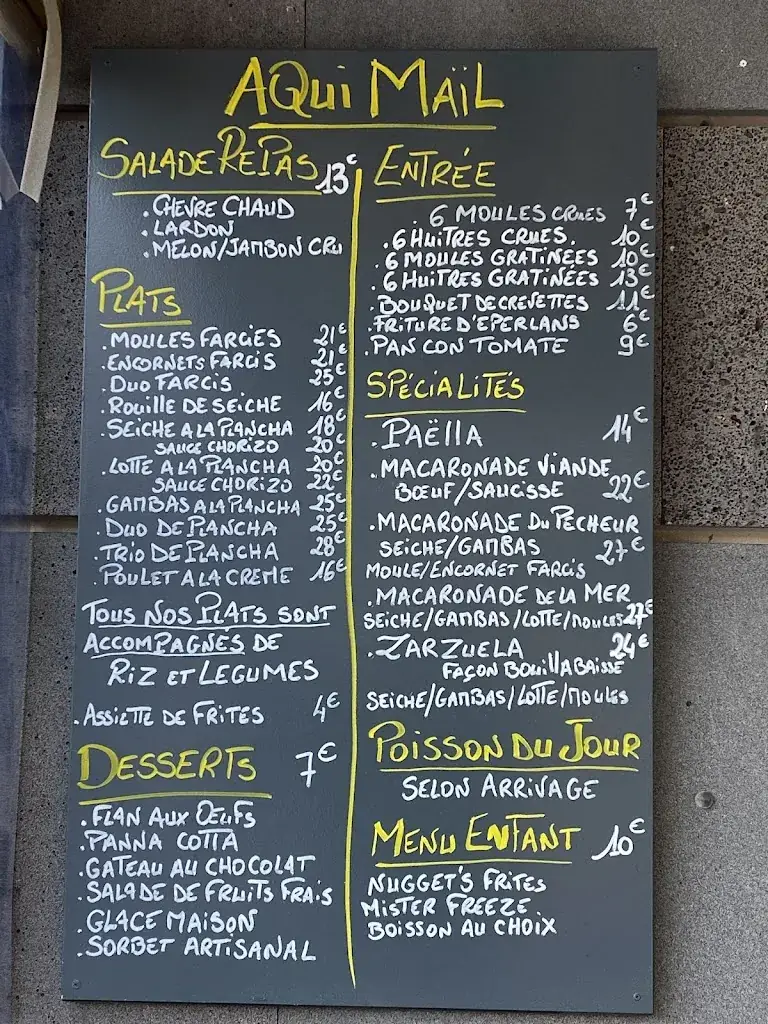 AQui MAÏL
SALADE REPAS 13€
. CHEVRE CHAUD
. LARDON
. MELON/JAMBON CRU
PLATS
. MOULES FARCIES 21€
. ENCORNETS FARCIS 21€
. DUO FARCIS 25€
. ROUILLE DE SEICHE 16€
. SEICHE A LA PLANCHA 18€
SAUCE CHORIZO 20€
. LOTTE A LA PLANCHA 20€
SAUCE CHORIZO 22€
. GAMBAS A LA PLANCHA 25€
. DUO DE PLANCHA 25€
. TRIO DE PLANCHA 28€
. POULET A LA CREME 16€
TOUS NOS PLATS SONT
ACCOMPAGNES DE
RIZ ET LEGUMES
. ASSIETTE DE FRITES 4€
DESSERTS 7€
. FLAN AUX OEUFS
. PANNA COTTA
. GATEAU AU CHOCOLAT
. SALADE DE FRUITS FRAIS
. GLACE MAISON
. SORBET ARTISANAL
ENTRÉE
6 MOULES CRUES 7€
. 6 HUITRES CRUES. 10€
. 6 MOULES GRATINÉES 10€
. 6 HUITRES GRATINÉES 13€
. BOUQUET DE CREVETTES 11€
. FRITURE D'EPERLANS 6€
. PAN CON TOMATE 9€
SPÉCIALITÉS
. PAËLLA 14€
. MACARONADE VIANDE
BŒUF/SAUCISSE 22€
. MACARONADE DU PECHEUR
SEICHE/GAMBAS 27€
MOULE/ENCORNET FARCIS
. MACARONADE DE LA MER
SEICHE/GAMBAS/LOTTE/MOULES 27€
. ZARZUELA 24€
FAÇON BOUILLABAISSE
SEICHE/GAMBAS/LOTTE/MOULES
POISSON DU JOUR
SELON ARRIVAGE
MENU ENFANT 10€
NUGGET'S FRITES
MISTER FREEZE
BOISSON AU CHOIX